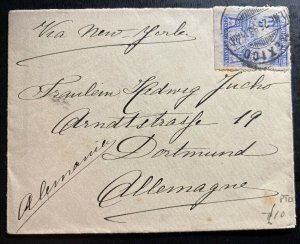 Via New-York
MEXICO
Fräulein Hedwig Jucho
Arndtstrasse 19
Dortmund
Allemagne
Alemania
£10